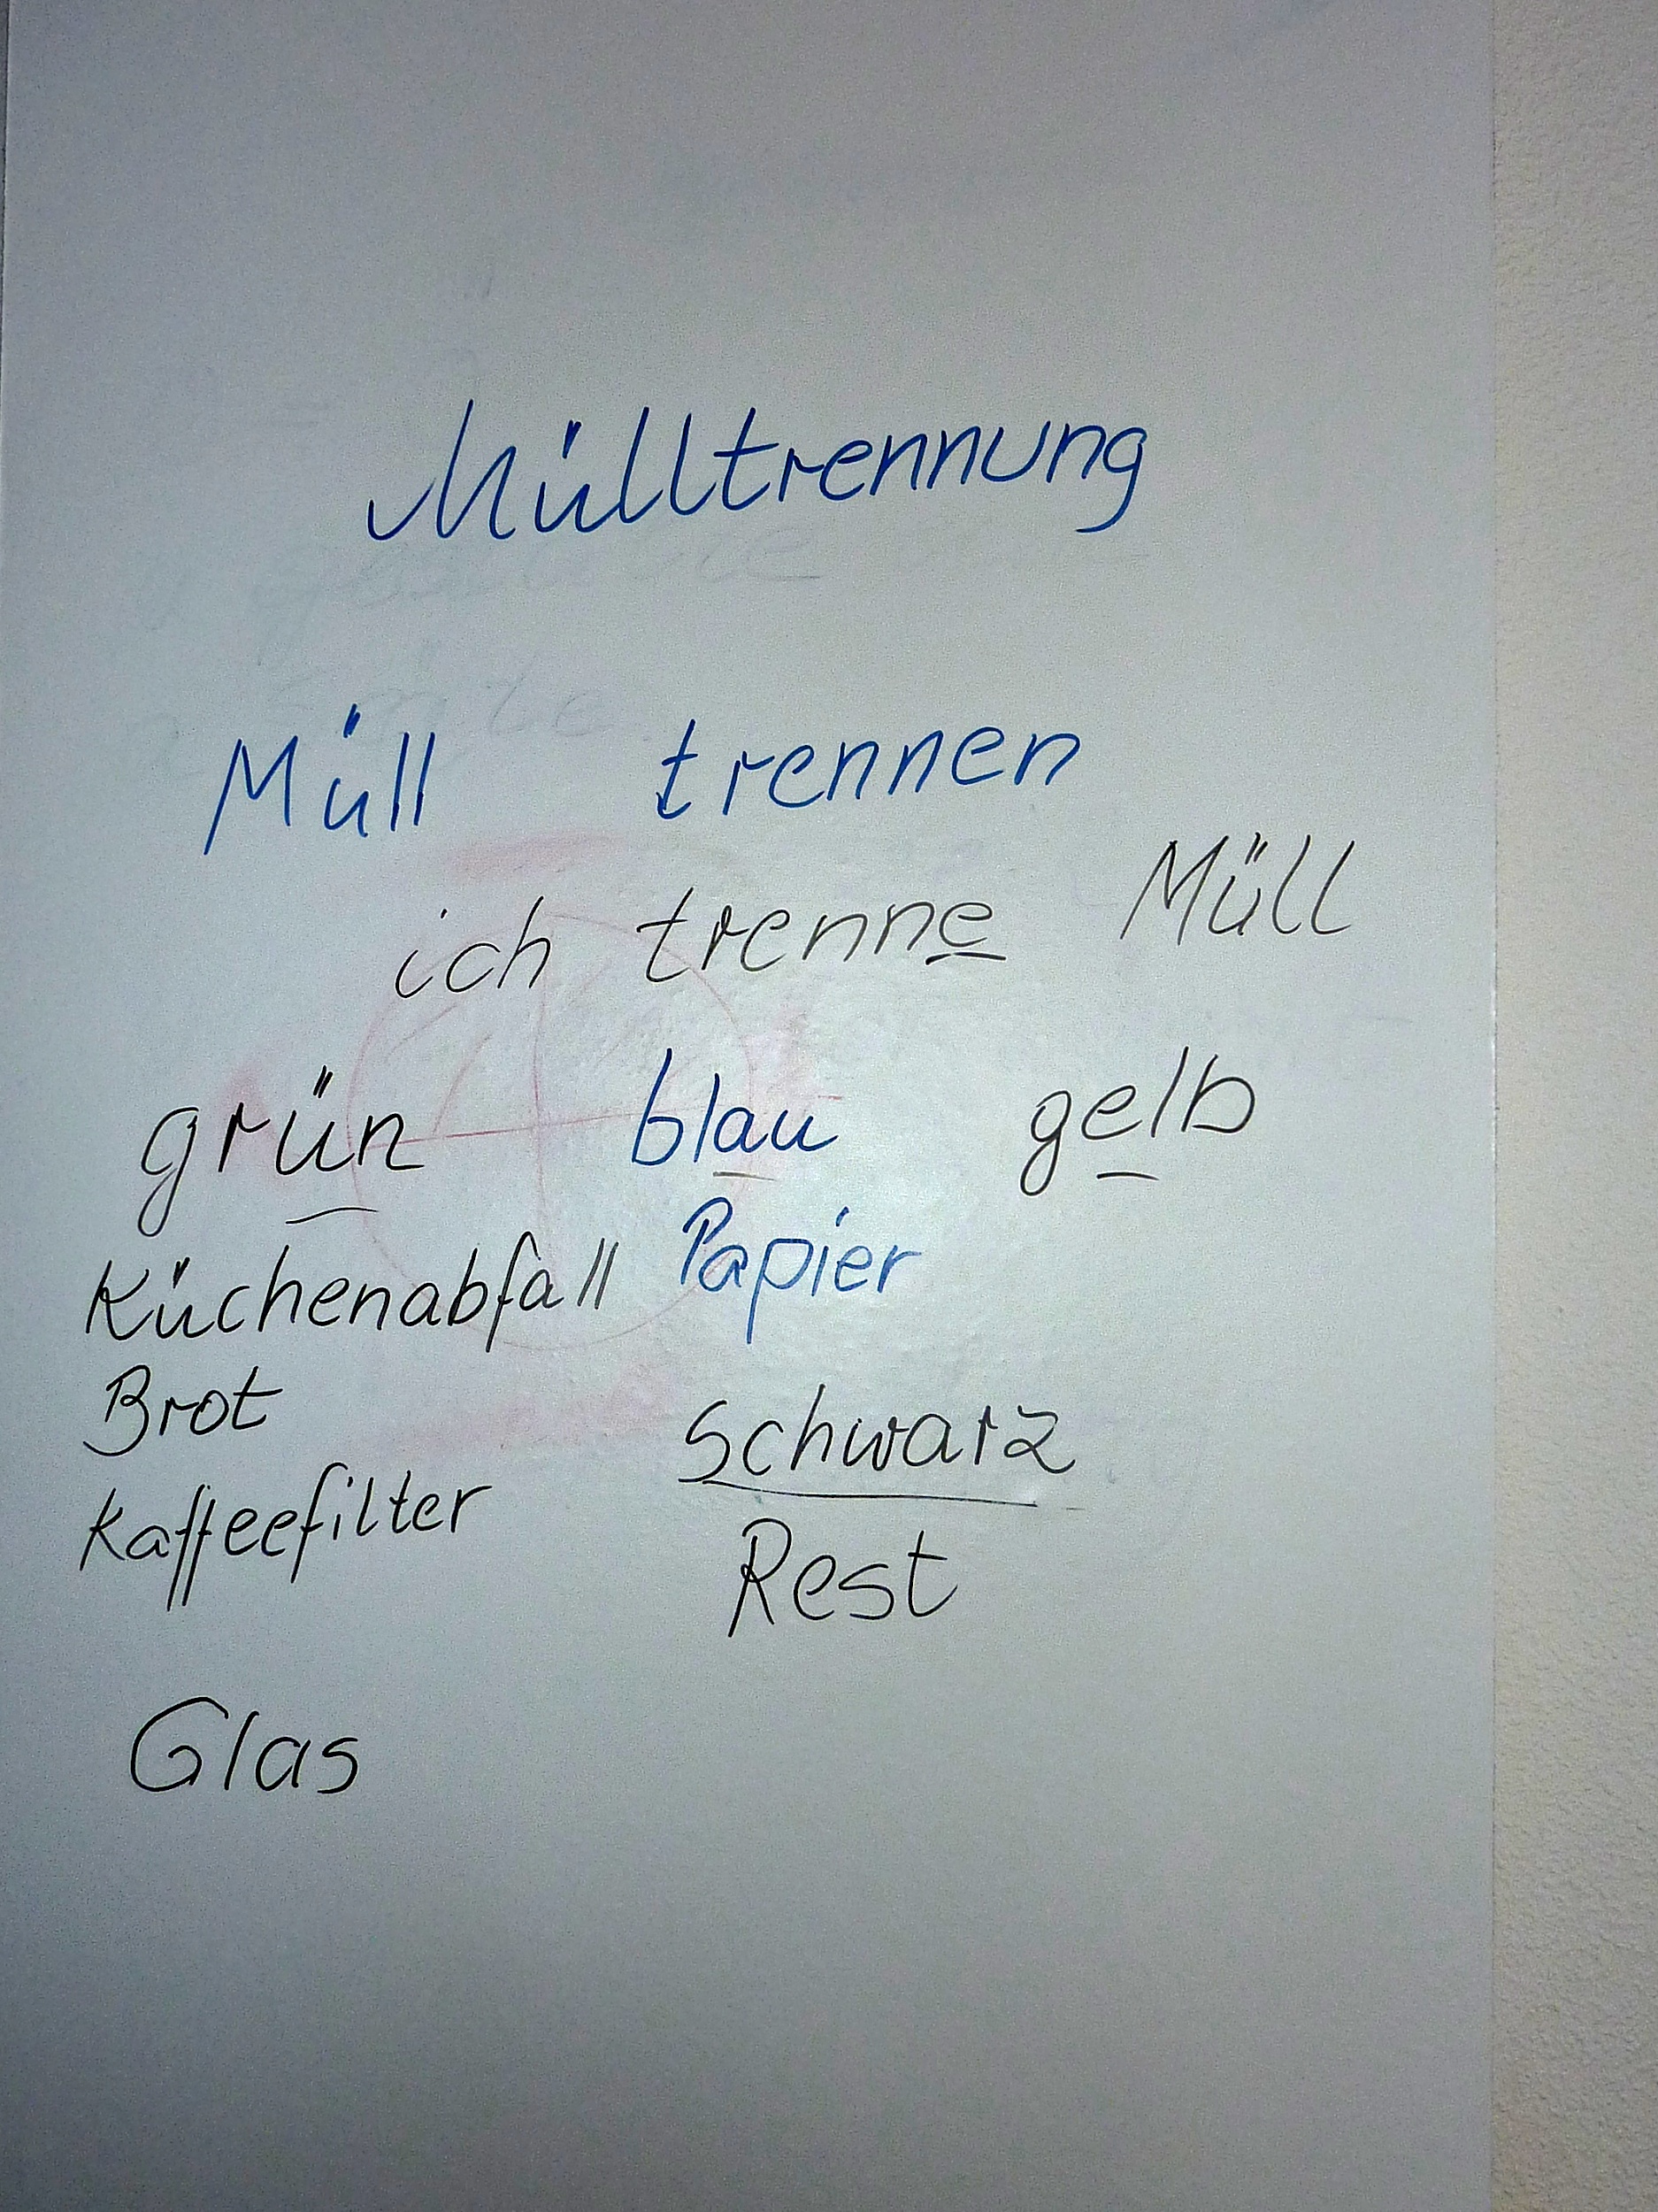 Mülltrennung
Müll trennen
ich trenne Müll
grün blau gelb
Küchenabfall Papier
Brot
schwarz
Kaffeefilter
Rest
Glas